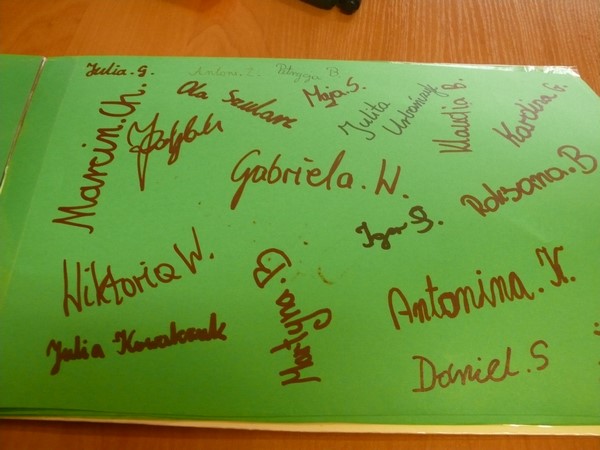 Julia. G.
Antoni. Z.
Patrycja B.
Marcin. Ch.
Ola Szulare
Maja S.
Julita
Urbaniak
Klaudia B.
Karolina G.
Gabriela. W.
Igor S.
Roksana. B
Wiktoria W.
Martyna. B
Antonina. K.
Julia Kowalczuk
Daniel. S